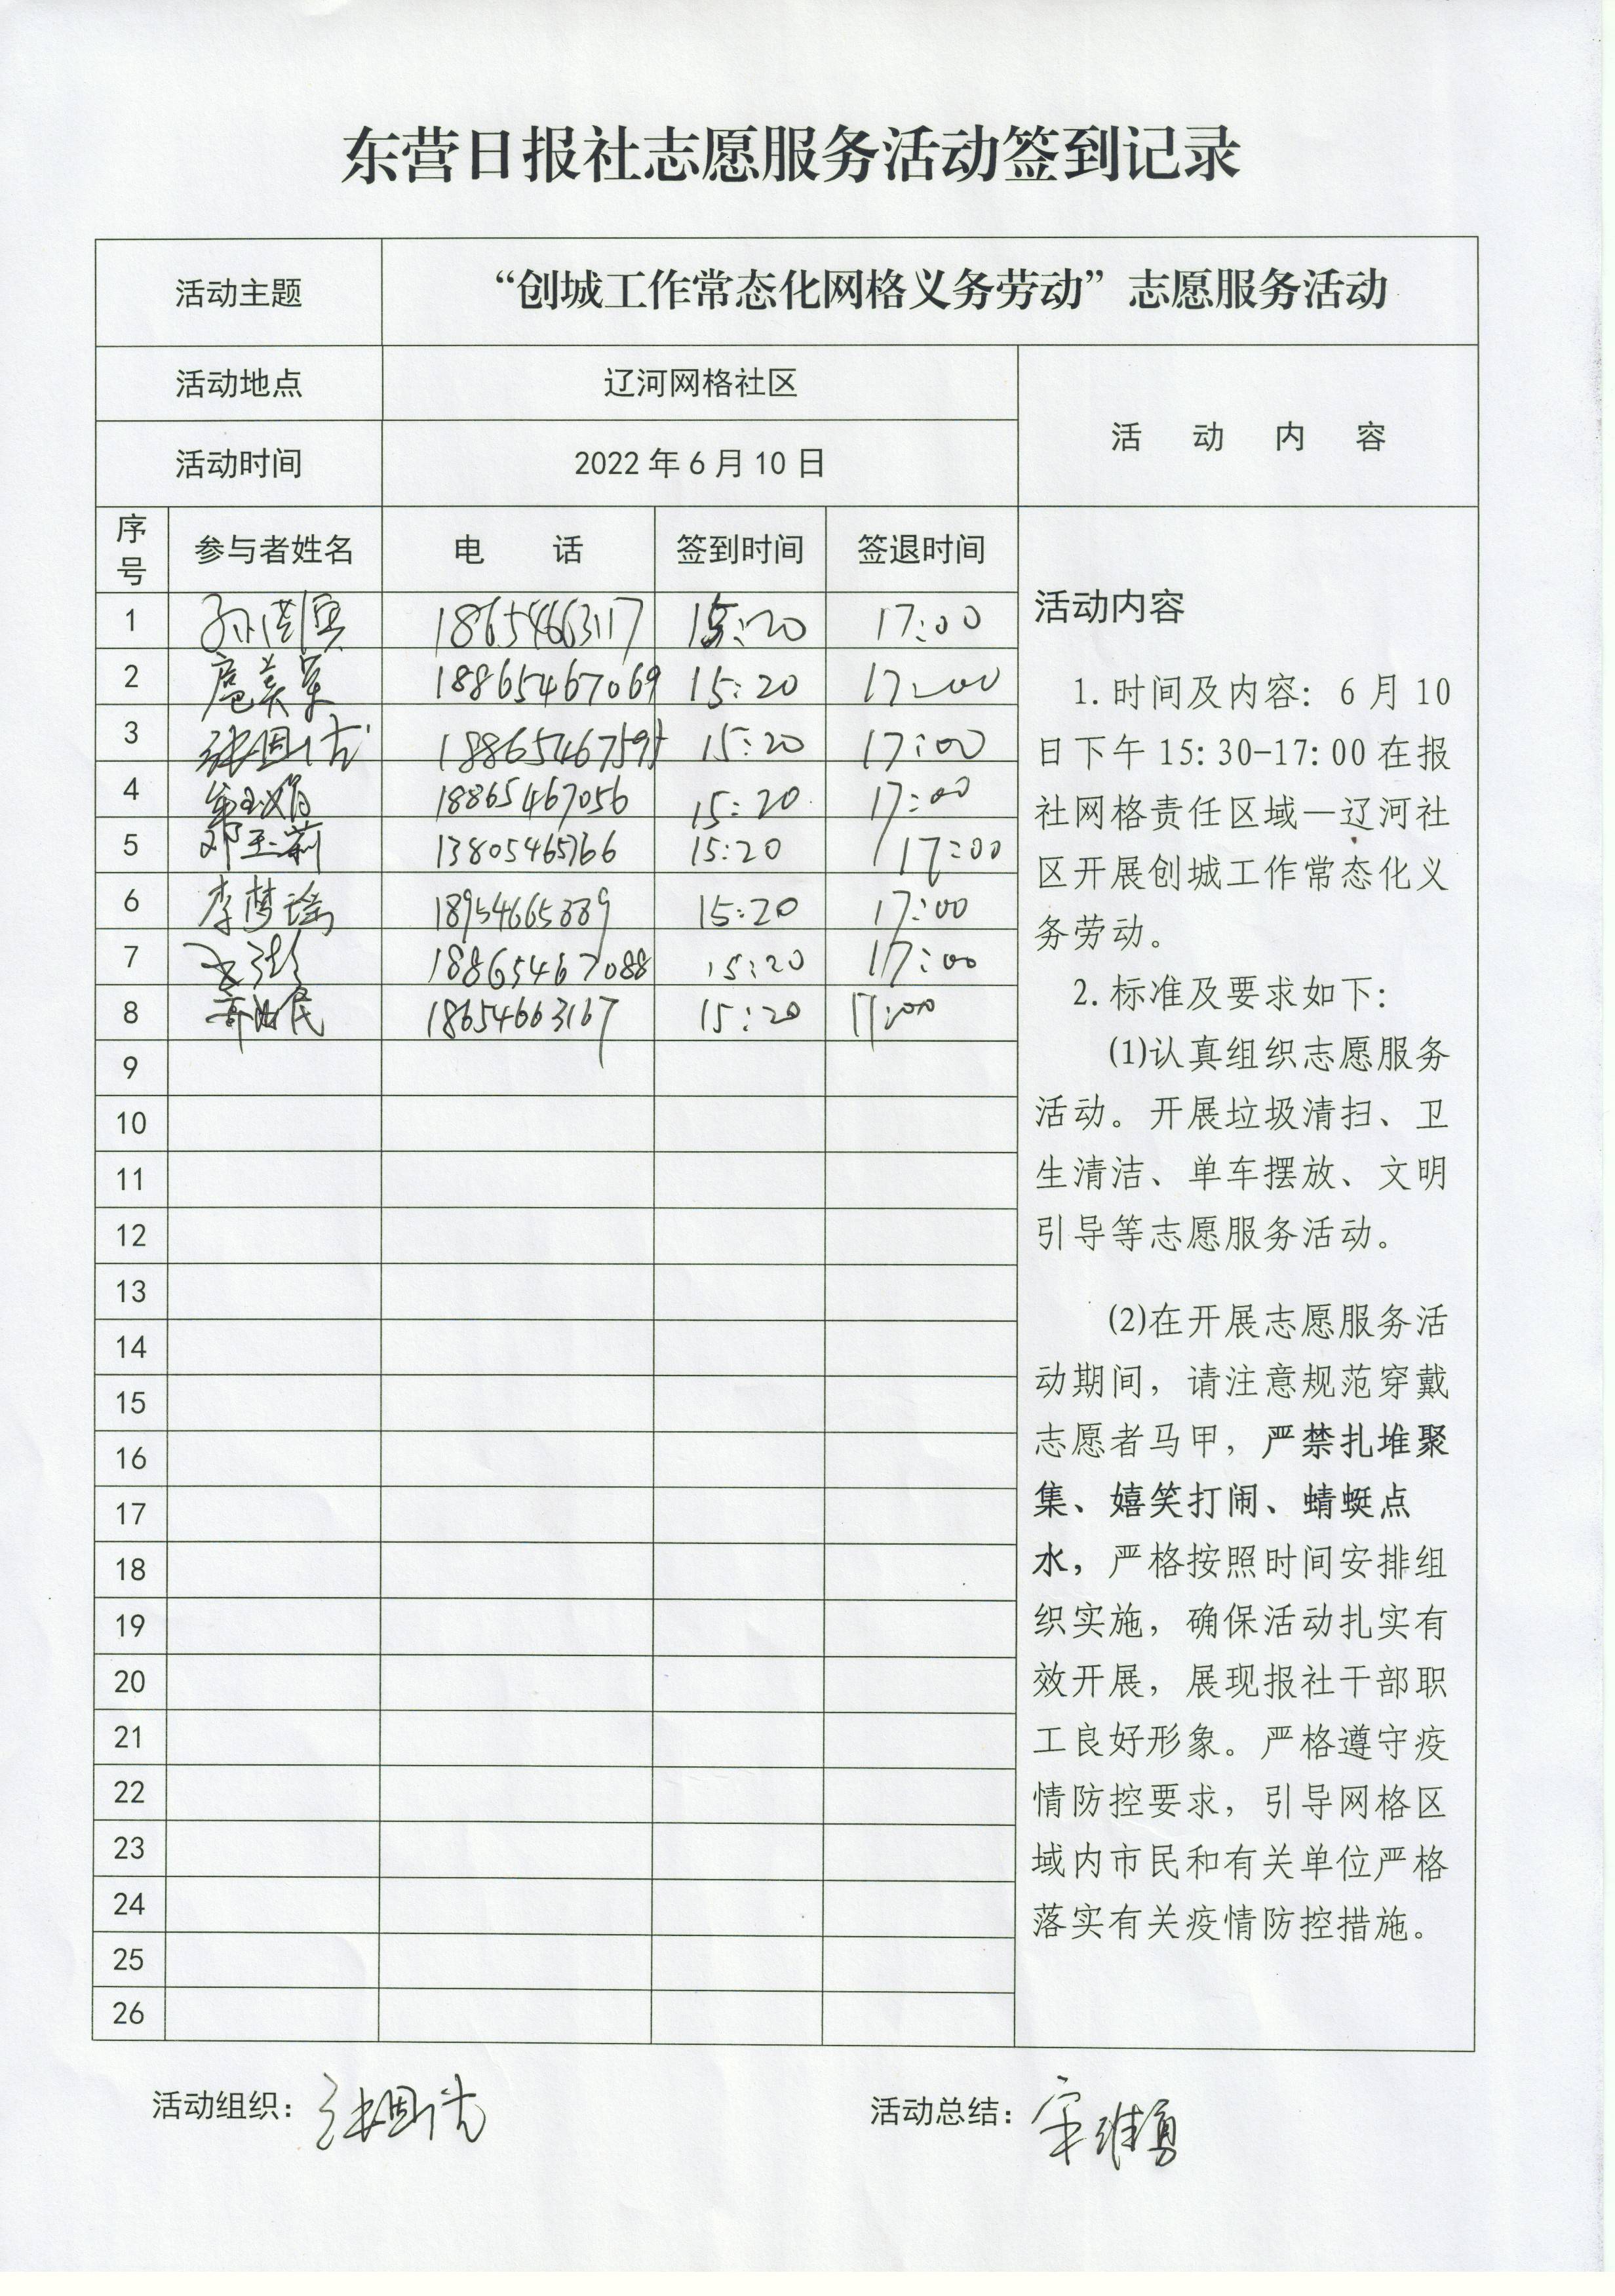 东营日报社志愿服务活动签到记录
活动主题 “创城工作常态化网格义务劳动”志愿服务活动
活动地点 辽河网格社区
活动时间 2022年6月10日
活 动 内 容
序号 参与者姓名 电 话 签到时间 签退时间
1 18654663117 15:20 17:00
2 扈美军 18865467069 15:20 17:00
3 张国信 18865467595 15:20 17:00
4 18865467056 15:20 17:00
5 邓玉莉 13805465766 15:20 17:00
6 李梦瑶 18954665889 15:20 17:00
7 18865467088 15:20 17:00
8 18654663167 15:20 17:00
9
10
11
12
13
14
15
16
17
18
19
20
21
22
23
24
25
26
活动内容
1.时间及内容：6月10
日下午15:30-17:00在报
社网格责任区域—辽河社
区开展创城工作常态化义
务劳动。
2.标准及要求如下：
(1)认真组织志愿服务
活动。开展垃圾清扫、卫
生清洁、单车摆放、文明
引导等志愿服务活动。
(2)在开展志愿服务活
动期间，请注意规范穿戴
志愿者马甲，严禁扎堆聚
集、嬉笑打闹、蜻蜓点
水，严格按照时间安排组
织实施，确保活动扎实有
效开展，展现报社干部职
工良好形象。严格遵守疫
情防控要求，引导网格区
域内市民和有关单位严格
落实有关疫情防控措施。
活动组织：张国信 活动总结：宋维勇